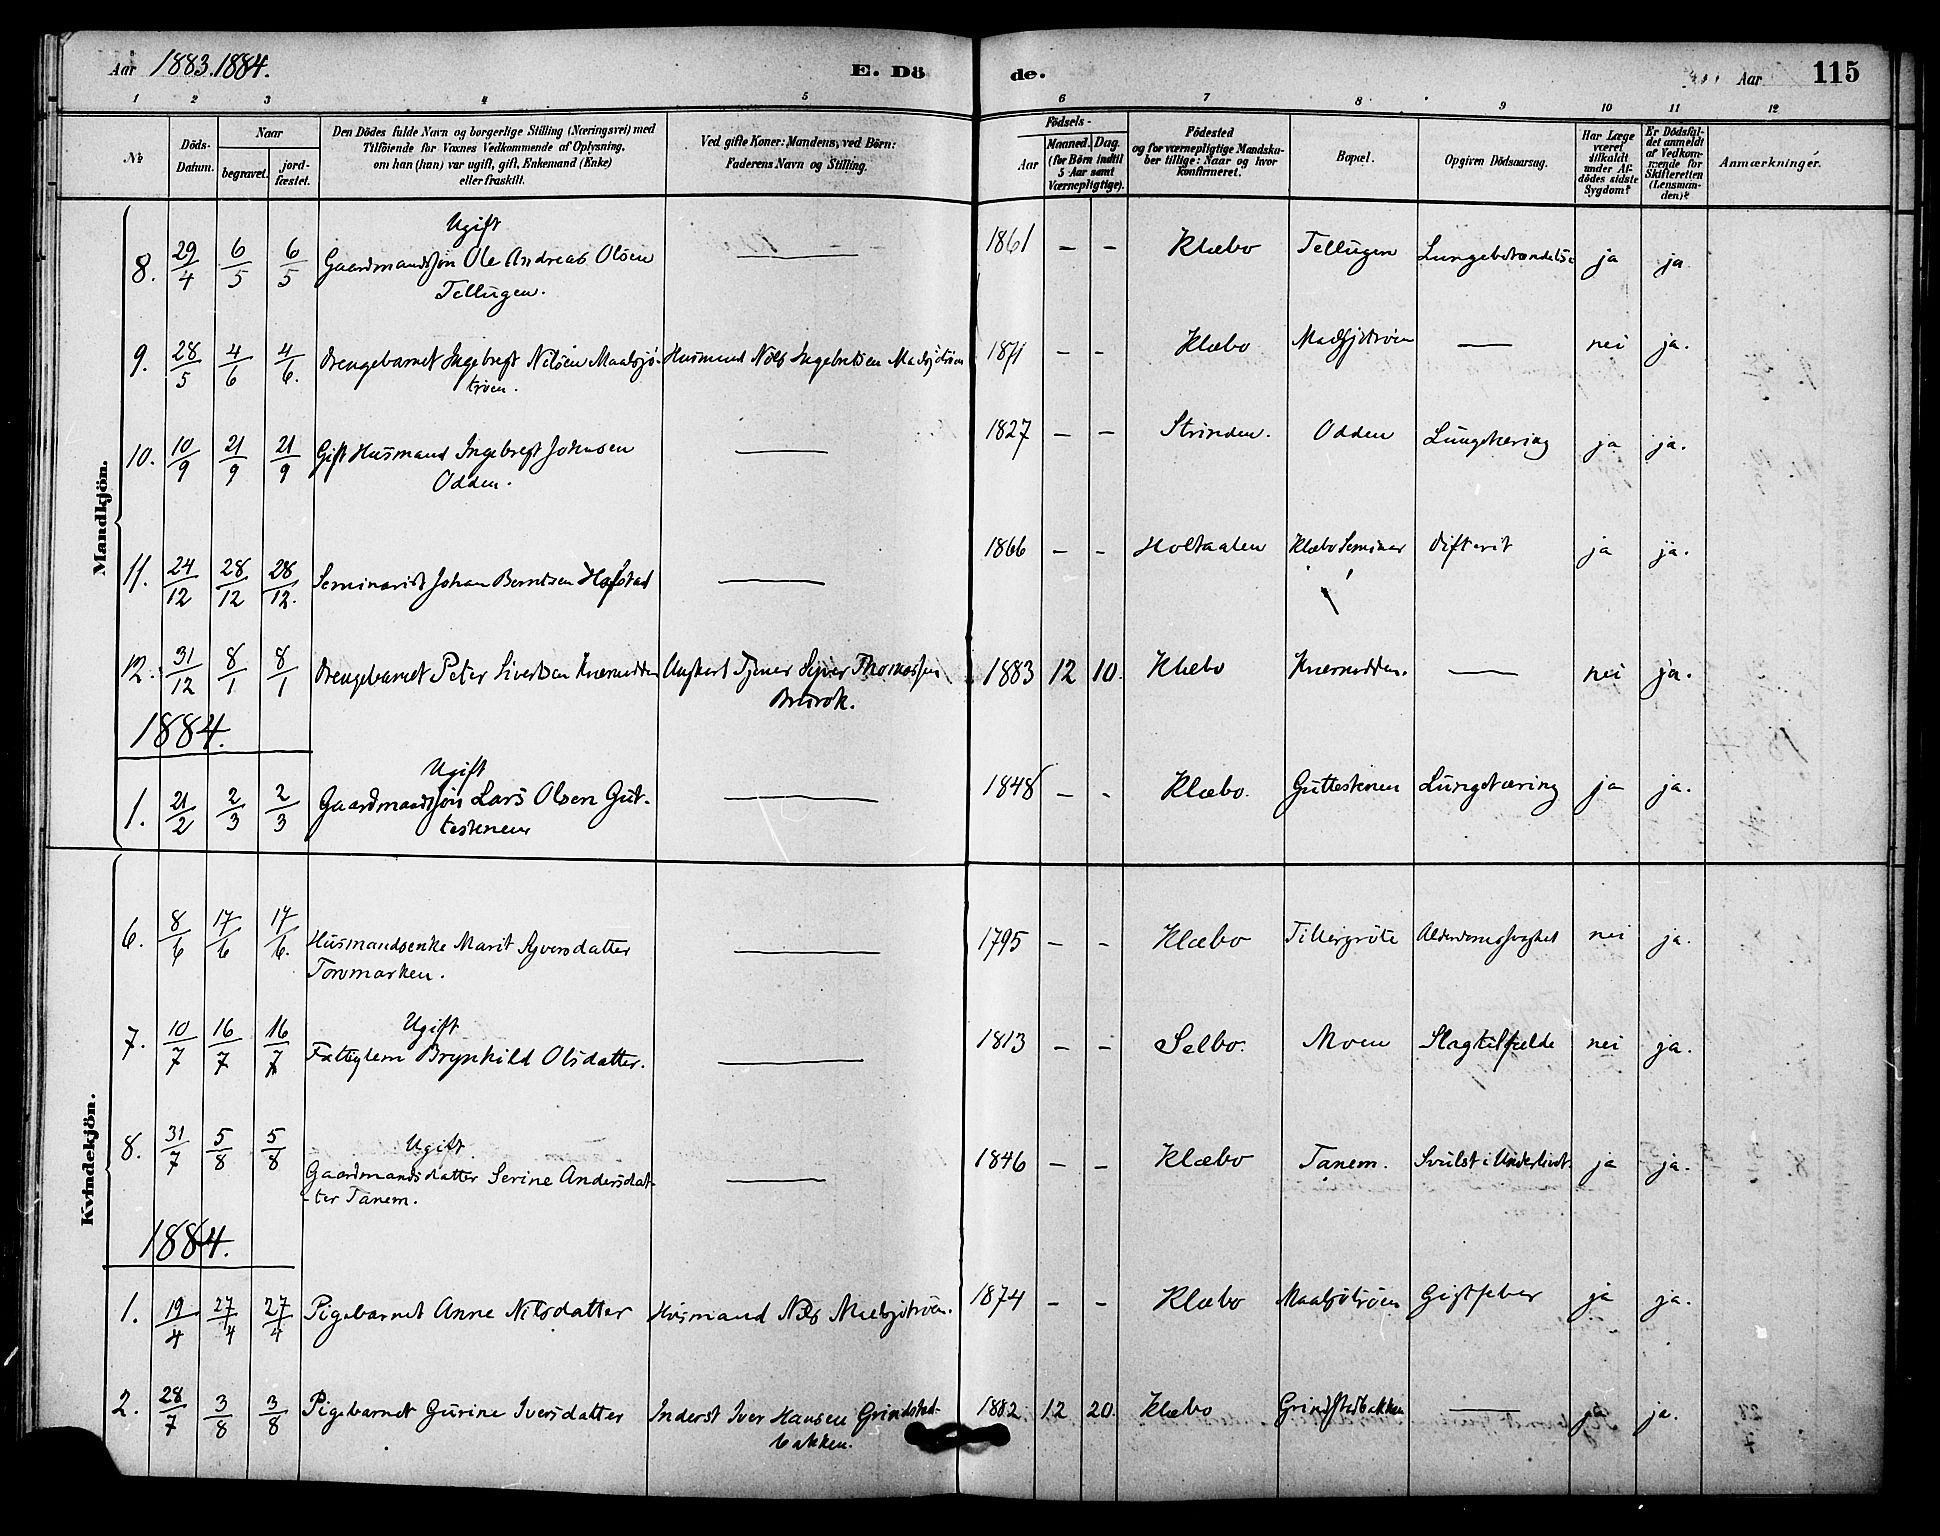 Aar 1883.1884.
E. Dö
de.
Aar
115
1 2 3 4 5 6 7 8 9 10 11 12
№
Döds-
Datum.
Naar
begravet.
jord-
fæstet.
Den Dödes fulde Navn og borgerlige Stilling (Næringsvei) med
Tilföiende for Voxnes Vedkommende af Oplysning,
om han (hun) var ugift, gift, Enkemand (Enke)
eller fraskilt.
Ved gifte Koner: Mandens, ved Börn:
Faderens Navn og Stilling.
Födsels-
Aar
Maaned. Dag.
(for Börn indtil
5 Aar samt
Værnepligtige).
Födested
og for værnepligtige Mandska-
ber tillige: Naar og hvor
konfirmeret.
Bopæl.
Opgiven Dödsaarsag.
Har Læge
været
tilkaldt
under Af-
dödes sidste
Sygdom?
Er Dödsfal-
det anmeldt
af Vedkom-
mende for
Skifteretten
(Lensman-
den)?
Anmærkninger.
Mandkjön.
Ugift
8. 29/4 6/5 6/5 Gaardmandssön Ole Andreas Olsen — 1861 — — Klæbo Tellugen Lungebetændelse ja ja
Tellugen.
9. 28/5 4/6 4/6. Drengebarnet Ingebregt Nilsen Maalsjö- Husmand Nils Ingebretsen Madsjötrøen 1871 — — Klæbo Madsjötröen — nei ja.
trøen.
10. 10/9 21/9 21/9 Gift Husmand Ingebregt Johnsen — 1827 — — Strinden. Odden Lungetæring ja ja.
Odden.
11. 24/12 28/12 28/12. Seminarist Johan Berntsen Hofstad — 1866 — — Holtaalen Klæbo Seminar Difterit ja ja.
12. 31/12 8/1 8/1 Drengebarnet Peter Sivertsen Kværnødden Ungkarl Tjener Syver Thomassen 1883 12 10. Klæbo Kværnødden. — nei ja.
Brurok.
1884.
Ugift
1. 21/2 2/3 2/3 Gaardmandssön Lars Olsen Gut- — 1848 — — Klæbo. Guttestenen Lungetæring ja ja.
testenen
Kvindekjön.
6. 8/6 17/6 17/6. Husmandsenke Marit Syversdatter — 1795 — — Klæbo Tillergröte Alderdomssvaghet nei ja.
Torvmarken.
Ugift
7. 10/7 16/7 16/7 Fattiglem Brynhild Olsdatter. — 1813 — — Selbo. Moen Slagtilfælde nei ja.
Ugift.
8. 31/7 5/8 5/8 Gaardmandsdatter Serine Andersdat- — 1846 — — Klæbo Tanem. Svulst i Underlivet. ja ja.
-ter Tanem.
1884.
1. 19/4 27/4 27/4 Pigebarnet Anne Nilsdatter Husmand Nils Maalsjötröen. 1874 — — Klæbo Maalsjötröen Gigtfeber ja ja.
2. 28/7 3/8 3/8 Pigebarnet Gurine Iversdatter Inderst Iver Hansen Grindstad- 1882 12 20. Klæbo Grindstadbakken — ja ja.
bakken.